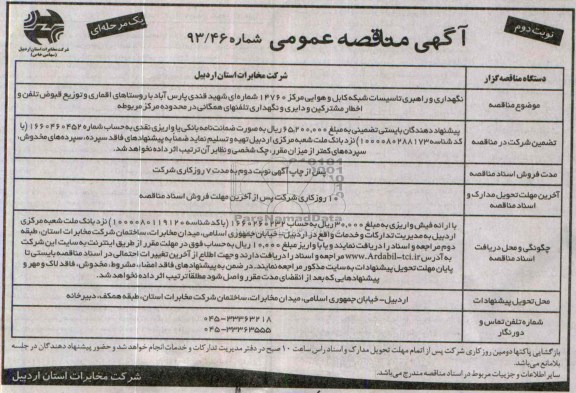 نوبت دوم
آگهی مناقصه عمومی شماره ۹۳/۴۶
یک مرحله‌ای
شرکت مخابرات استان اردبیل
(سهامی خاص)
دستگاه مناقصه گزار
شرکت مخابرات استان اردبیل
موضوع مناقصه
نگهداری و راهبری تاسیسات شبکه کابل و هوایی مرکز ۱۴۷۶۰ شماره ای شهید قندی پارس آباد با روستاهای اقماری و توزیع قبوض تلفن و
اخطار مشترکین و دایری و نگهداری تلفنهای همگانی در محدوده مرکز مربوطه
تضمین شرکت در مناقصه
پیشنهاد دهندگان بایستی تضمینی به مبلغ ۶۵,۲۰۰,۰۰۰ ریال به صورت ضمانت نامه بانکی یا واریز نقدی به حساب شماره ۱۶۶۰۴۶۰۴۵۲ (با
کد شناسه ۱۰۰۰۰۸۰۲۸۸۱۷۳) نزد بانک ملت شعبه مرکزی اردبیل تهیه و تسلیم نماید ضمناً به پیشنهادهای فاقد سپرده، سپرده‌های مخدوش،
سپرده‌های کمتر از میزان مقرر، چک شخصی و نظایر آن ترتیب اثر داده نخواهد شد.
مدت فروش اسناد مناقصه
پس از چاپ آگهی نوبت دوم به مدت ۷ روزکاری شرکت
آخرین مهلت تحویل مدارک و
اسناد مناقصه
۱۰ روزکاری شرکت پس از آخرین مهلت فروش اسناد مناقصه
چگونگی و محل دریافت
اسناد مناقصه
با ارائه فیش واریزی به مبلغ ۳۰,۰۰۰ ریال به حساب (با کد شناسه ۱۰۰۰۰۸۰۱۱۹۱۲۰) نزد بانک ملت شعبه مرکزی
اردبیل به مدیریت تدارکات و خدمات واقع در اردبیل - خیابان جمهوری اسلامی، میدان مخابرات، ساختمان شرکت مخابرات استان، طبقه
دوم مراجعه و اسناد را دریافت نمایند و یا با واریز مبلغ ۱۰,۰۰۰ ریال به حساب فوق در مهلت مقرر از طریق اینترنت به سایت این شرکت
به آدرس www.Ardabil-tci.ir مراجعه و اسناد را دریافت دارند وجهت اطلاع از آخرین تغییرات احتمالی در اسناد مناقصه بایستی تا
پایان مهلت تحویل پیشنهادات به سایت مذکور مراجعه نمایند. در ضمن به پیشنهادهای فاقد امضاء، مشروط، مخدوش، فاقد لاک و مهر و
پیشنهادهایی که بعد از انقضای مدت مقرر واصل شود مطلقاً ترتیب اثر داده نخواهد شد.
محل تحویل پیشنهادات
اردبیل- خیابان جمهوری اسلامی، میدان مخابرات، ساختمان شرکت مخابرات استان، طبقه همکف، دبیرخانه
شماره تلفن تماس و
دورنگار
۰۴۵-۳۳۳۶۳۲۱۸
۰۴۵-۳۳۳۶۳۵۵۵
بازگشایی پاکتها دومین روز کاری شرکت پس از اتمام مهلت تحویل مدارک و اسناد راس ساعت ۱۰ صبح در دفتر مدیریت تدارکات و خدمات انجام خواهد شد و حضور پیشنهاد دهندگان در جلسه
بلامانع می‌باشد.
سایر اطلاعات و جزییات مربوط در اسناد مناقصه مندرج می‌باشد.
شرکت مخابرات استان اردبیل
ParsNamadData